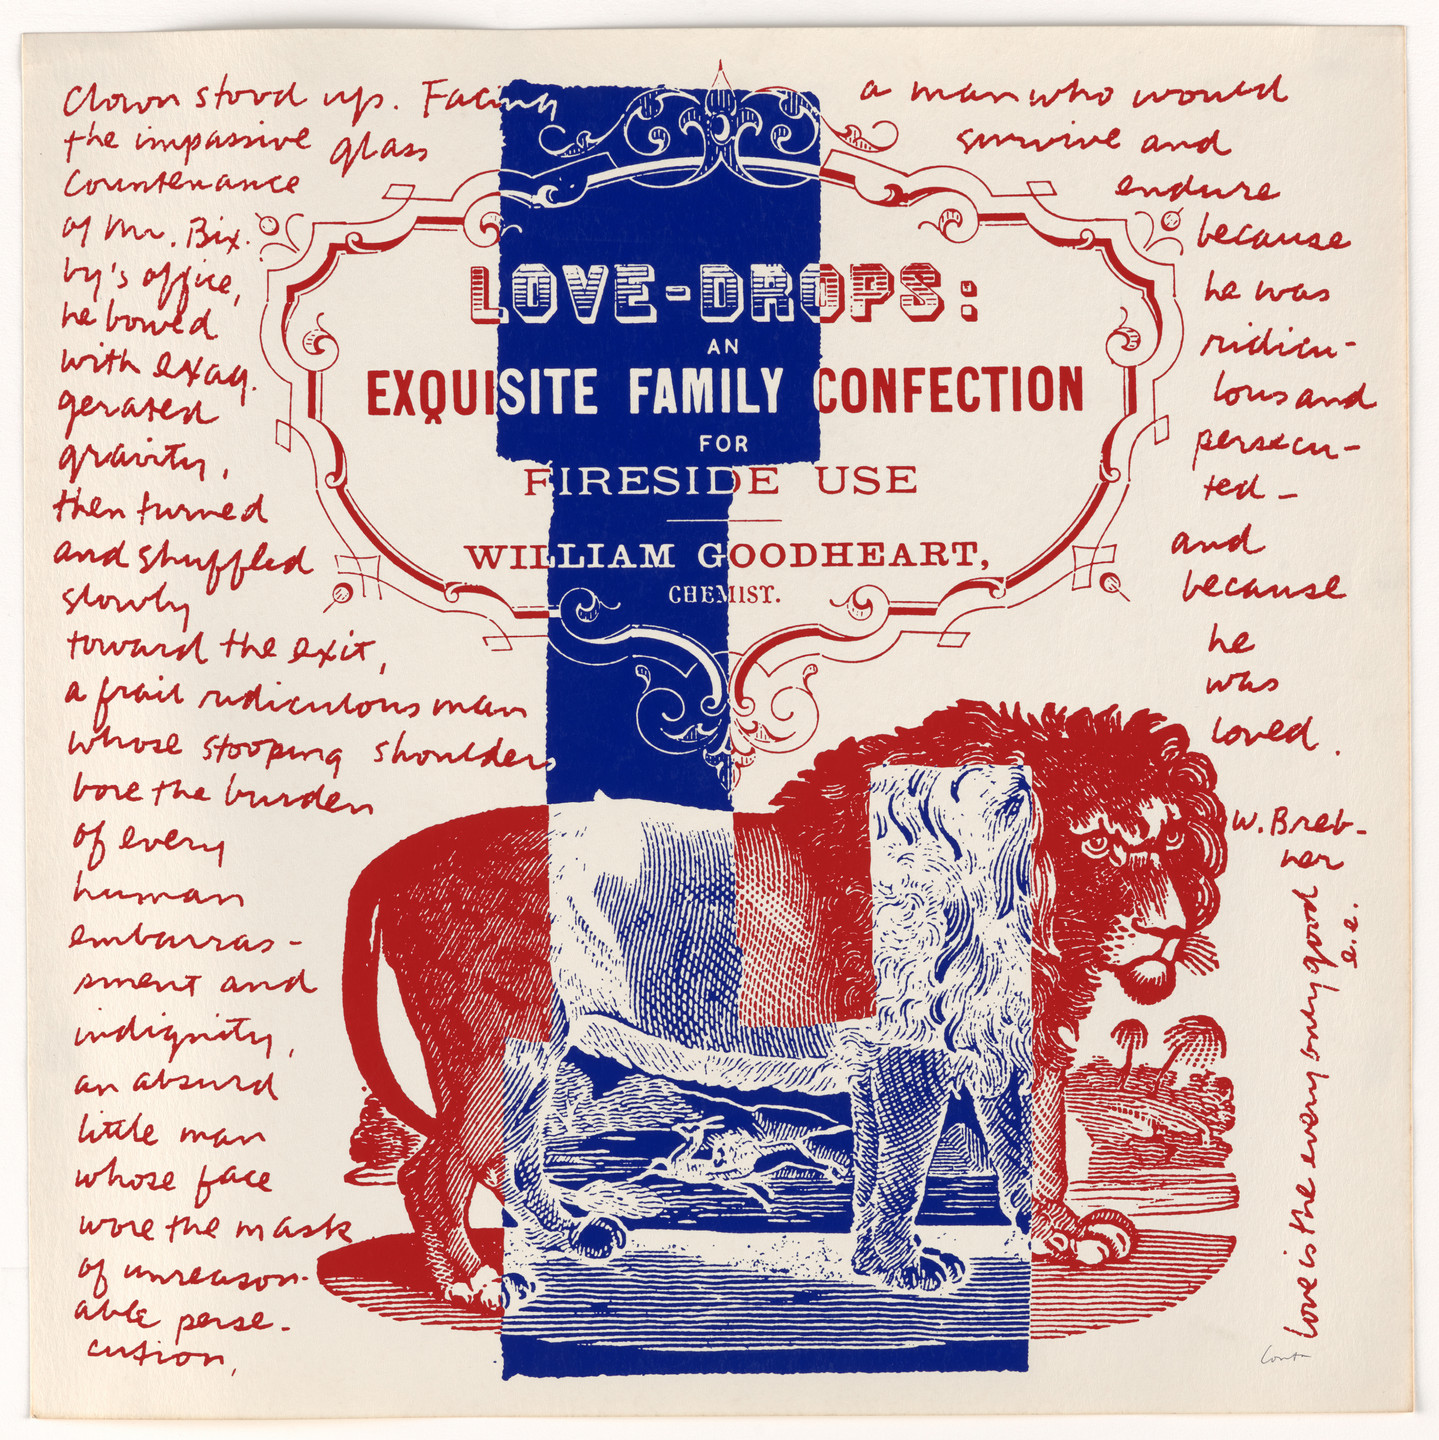 Clown stood up. Facing
the impassive glass
countenance
of Mr. Bix.
by's office,
he bowed
with exag.
gerated
gravity,
then turned
and shuffled
slowly
toward the exit,
a frail ridiculous man
whose stooping shoulders
bore the burden
of every
human
embarras-
sment and
indignity,
an absurd
little man
whose face
wore the mask
of unreason-
able perse-
cution,
a man who would
survive and
endure
because
he was
ridicu-
lous and
persecu-
ted-
and
because
he
was
loved.
W. Breb-
ner
LOVE-DROPS:
AN
EXQUISITE FAMILY CONFECTION
FOR
FIRESIDE USE
WILLIAM GOODHEART,
CHEMIST.
love is the every only good
e.e.
Corita